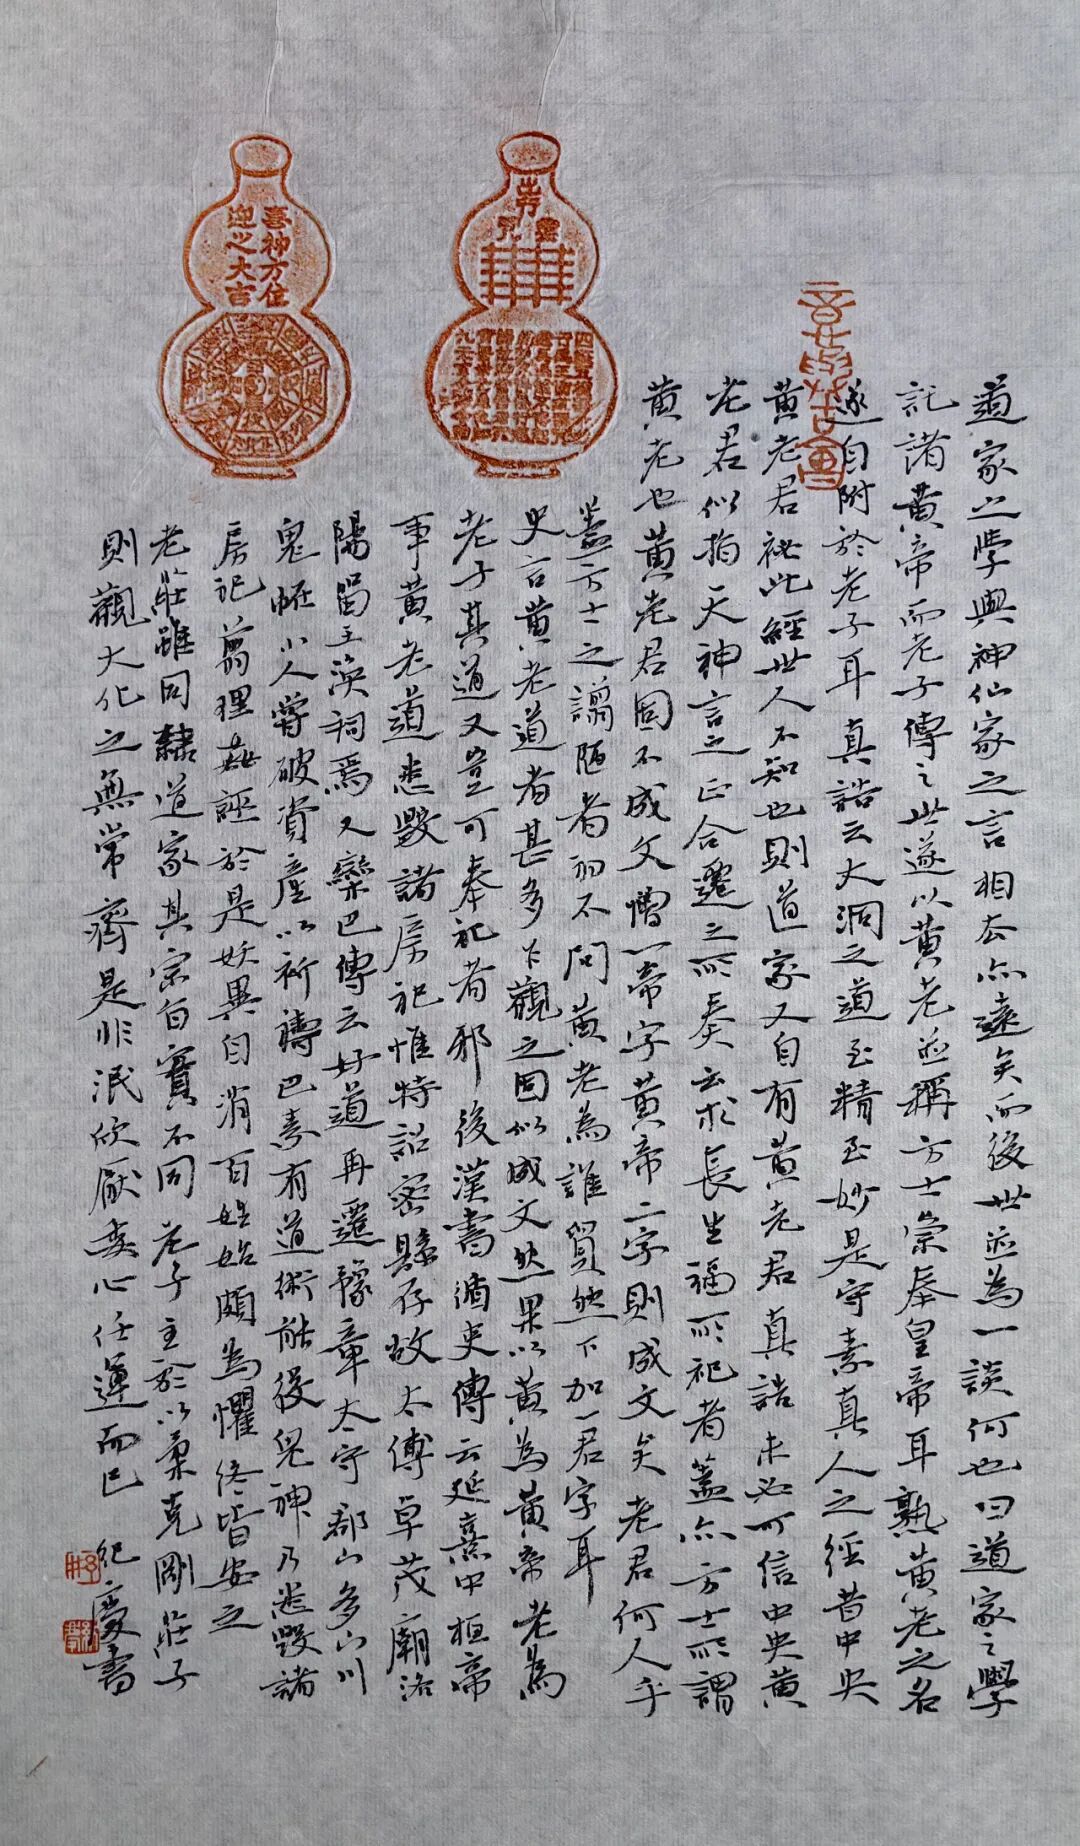 道家之學與神仙家之言相去亦遠矣而後世並為一談何也曰道家之學
託諸黄帝而老子傳之世遂以黄老並稱方士崇奉皇帝耳熟黄老之名
遂自附於老子耳真誥云大洞之道至精至妙是守素真人之經昔中央
黄老君祕此經世人不知也則道家又自有黄老君真誥未必可信中央黄
老君似指天神言之正合遷之所奏云求長生福所祀者蓋亦方士所謂
黄老也黄老君固不成文增一帝字黄帝二字則成文矣老君何人乎
蓋方士之譾陋者初不問黄老為誰貿然下加一君字耳
史言黄老道者甚多下觀之固似成文然果以黄為黄帝老為
老子其道又豈可奉祀者邪後漢書循吏傳云延熹中桓帝
事黄老道悉毀諸房祀惟特詔密縣存故太傅卓茂廟洛
陽留王渙祠焉又欒巴傳云好道再遷豫章太守郡山多山川
鬼怪小人嘗破資產以祈禱巴素有道術能役鬼神乃悉毀諸
房祀翦理姦誣於是妖異自消百姓始頗為懼終皆安之
老莊雖同隸道家其宗旨實不同老子主於以柔克剛莊子
則觀大化之無常齊是非泯欣厭委心任運而已
紀慶書
出行
喜神方位
迎之大吉